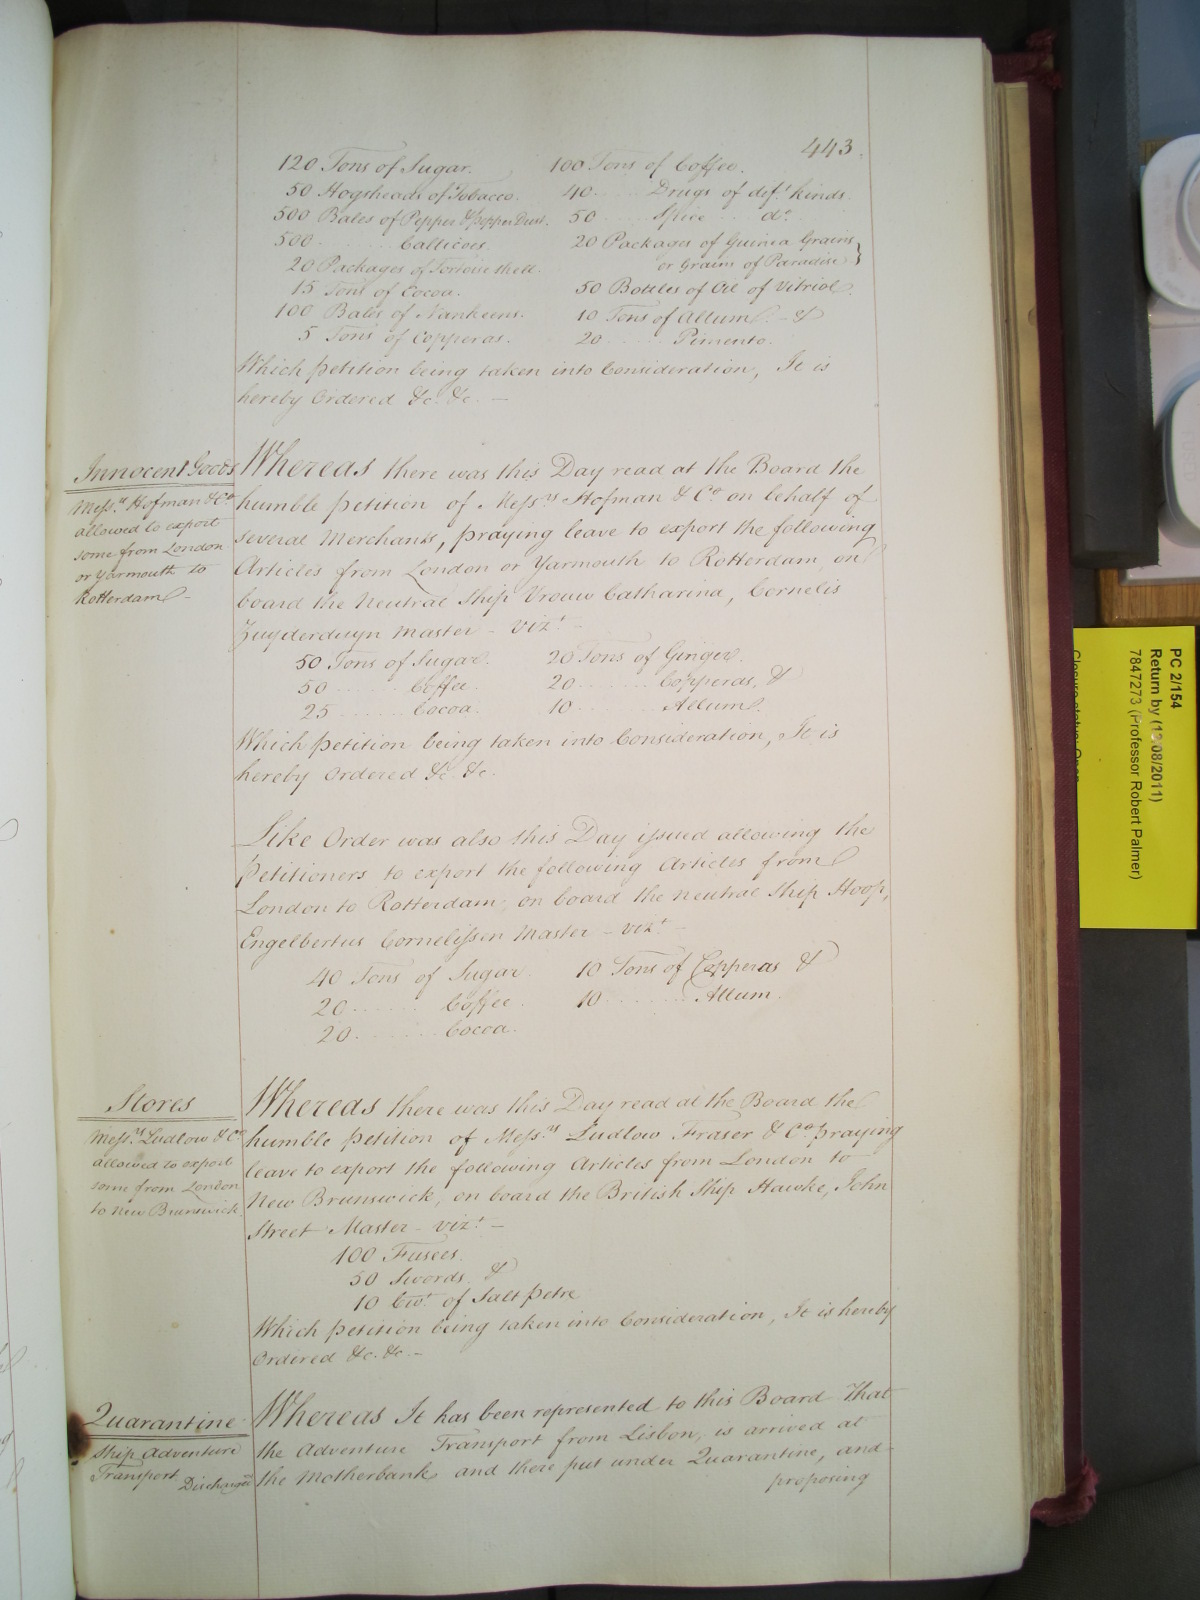 443.
120 Tons of Sugar. 100 Tons of Coffee.
50 Hogsheads of Tobacco. 40 ...... Drugs of dif.t kinds
500 Bales of Pepper & pepper Dust. 50 ...... Spice .... do.
500 ........ Callicoes. 20 Packages of Guinea Grains
20 Packages of Tortoise shell. or Grains of Paradise }
15 Tons of Cocoa. 50 Bottles of Oil of Vitriol.
100 Bales of Nankeens. 10 Tons of Allum - &
5 Tons of Copperas. 20 ...... Pimento.
Which petition being taken into Consideration, It is
hereby Ordered &c. &c. —
Innocent Goods
Mess.rs Hofman & Co
allowed to export
some from London
or Yarmouth to
Rotterdam -
Whereas there was this Day read at the Board the
humble petition of Mess.rs Hofman & Co on behalf of
several Merchants, praying leave to export the following
Articles from London or Yarmouth to Rotterdam, on
board the Neutral Ship Vrouw Catharina, Cornelis
Zuyderduyn Master - vizt -
50 Tons of Sugar. 20 Tons of Ginger.
50 ...... Coffee. 20 ....... Copperas, &
25 ...... Cocoa. 10 ........ Allum.
Which petition being taken into Consideration, It is
hereby Ordered &c. &c.
Like Order was also this Day issued allowing the
Petitioners to export the following Articles from
London to Rotterdam, on board the Neutral Ship Hoop,
Engelbertus Cornelissen Master - vizt -
40 Tons of Sugar. 10 Tons of Copperas &
20 ....... Coffee. 10 ........ Allum.
20 ....... Cocoa.
Stores
Mess.rs Ludlow & Co
allowed to export
some from London
to New Brunswick.
Whereas there was this Day read at the Board the
humble petition of Mess.rs Ludlow Fraser & Co praying
leave to export the following Articles from London to
New Brunswick, on board the British Ship Hawke, John
Street Master - vizt -
100 Fusees.
50 Swords, &
10 Cwt. of Salt petre
Which petition being taken into Consideration, It is hereby
Ordered &c. &c. -
Quarantine
Ship Adventure
Transport
Discharged
Whereas It has been represented to this Board That
the Adventure Transport from Lisbon, is arrived at
the Motherbank, and there put under Quarantine, and
proposing
PC 2/154
Return by (13/08/2011)
7847273 (Professor Robert Palmer)
Closure status: Open